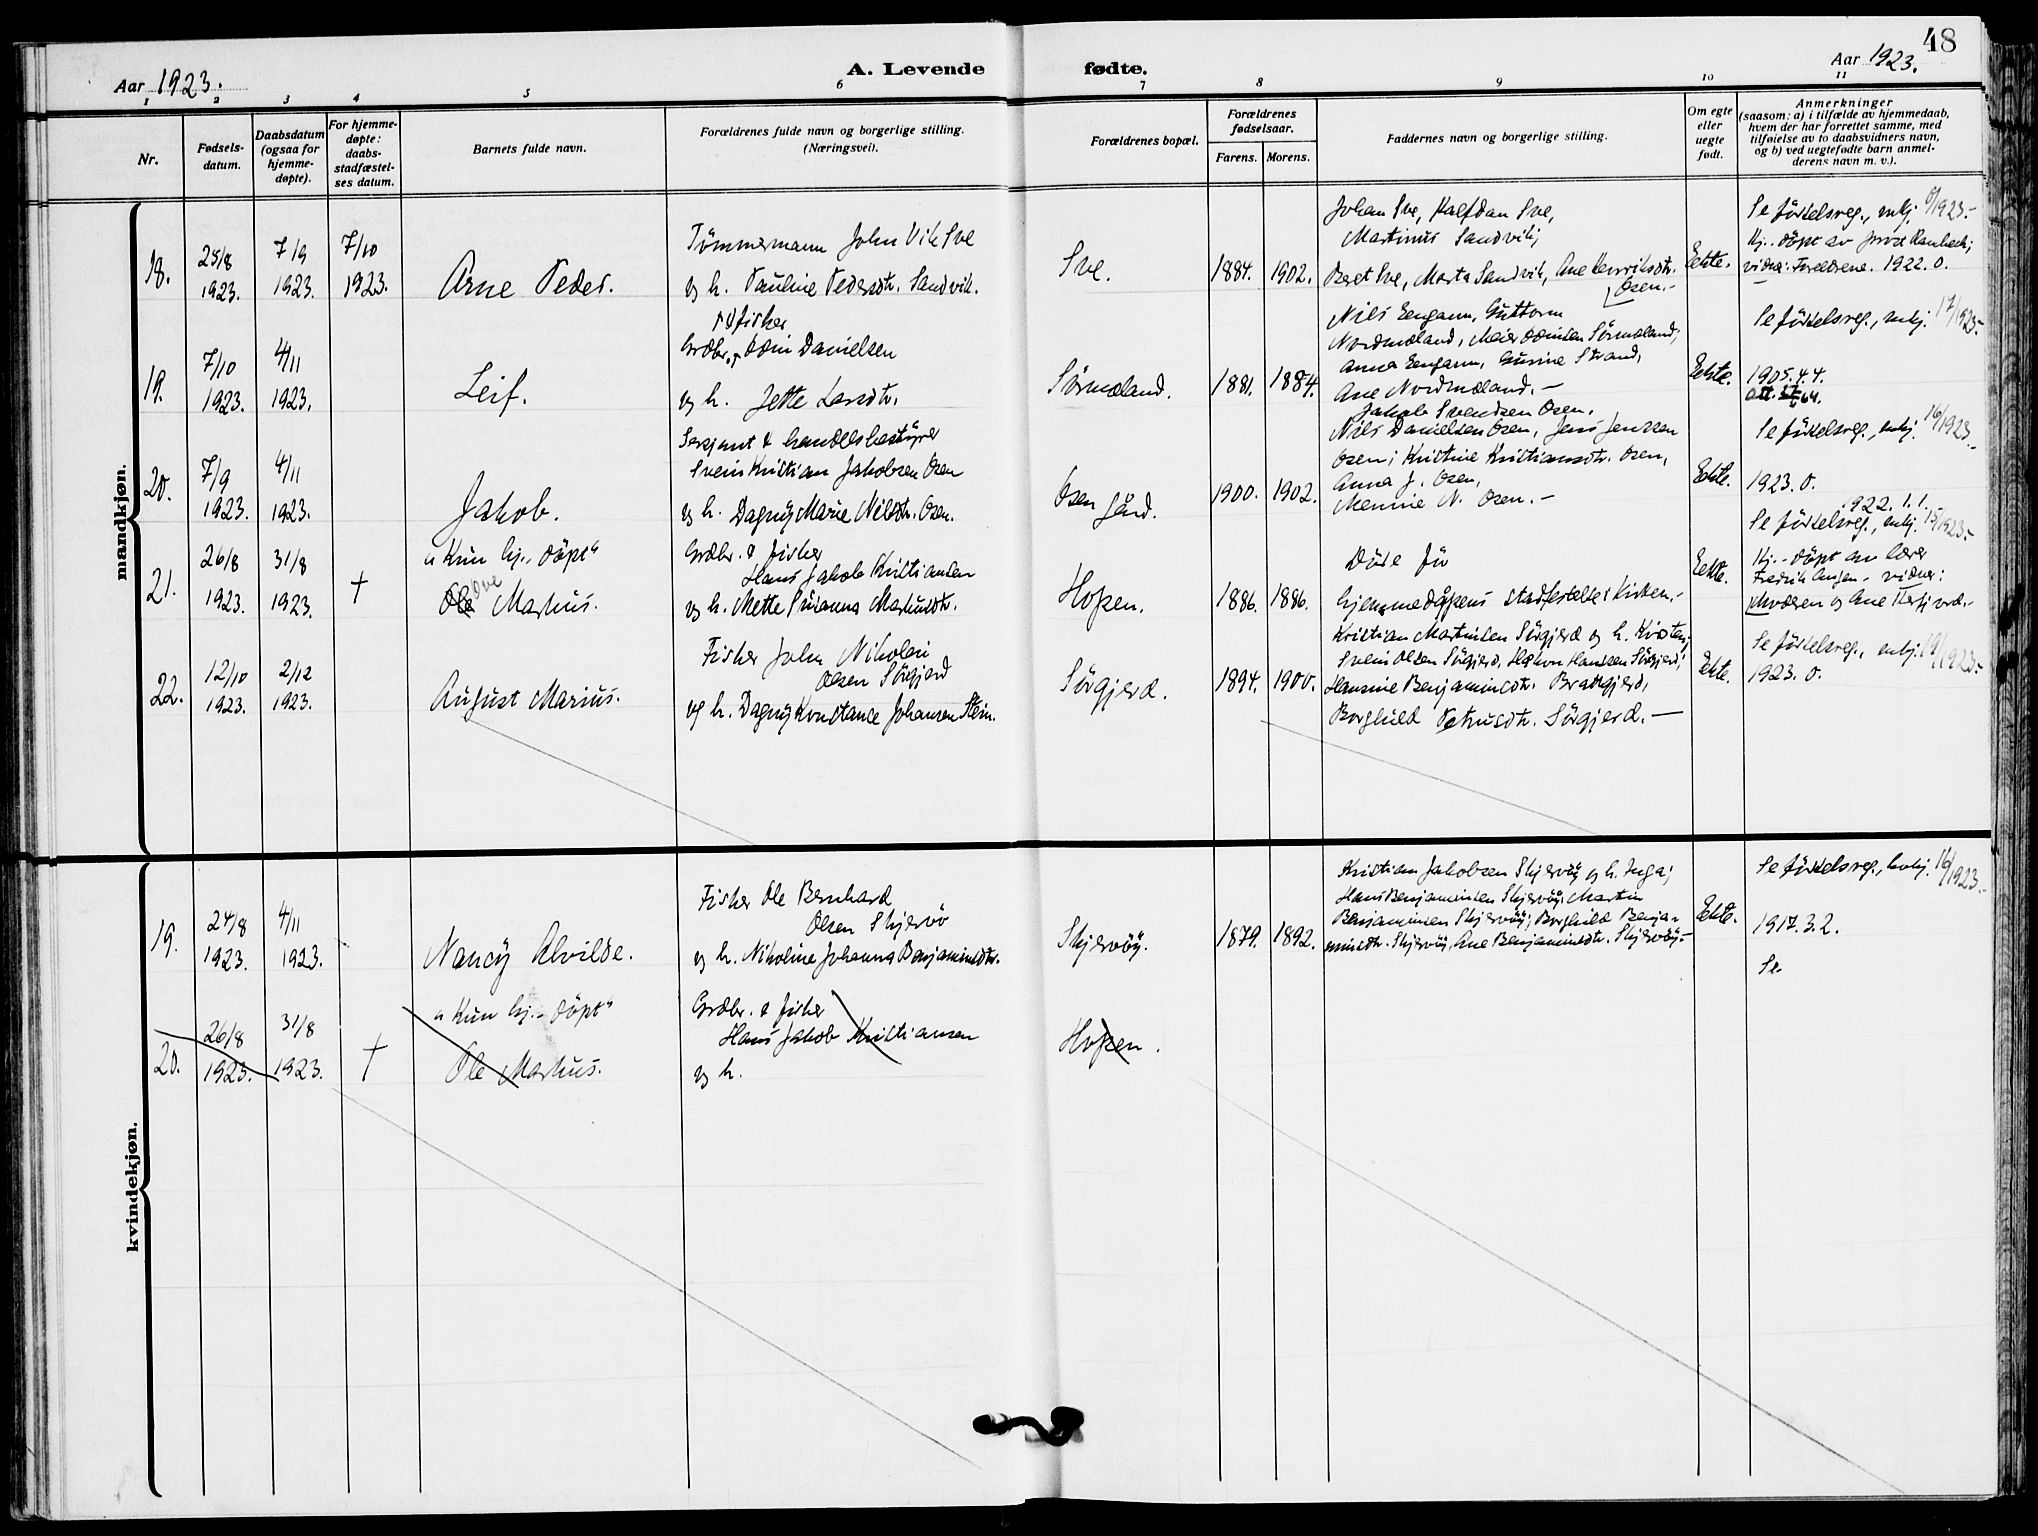 48
Aar 1923.
A. Levende fødte.
Aar 1923.
1 2 3 4 5 6 7 8 9 10 11
Nr.
Fødsels-
datum.
Daabsdatum
(ogsaa for
hjemme-
døpte).
For hjemme-
døpte:
daabs-
stadfæstel-
ses datum.
Barnets fulde navn.
Forældrenes fulde navn og borgerlige stilling.
(Næringsvei).
Forældrenes bopæl.
Forældrenes
fødselsaar.
Farens. Morens.
Faddernes navn og borgerlige stilling.
Om egte
eller
uegte
født.
Anmerkninger
(saasom: a) i tilfælde av hjemmedaab,
hvem der har forrettet samme, med
tilføielse av to daabsvidners navn,
og b) ved uegtefødte barn anmel-
derens navn m. v.).
mandkjøn.
18.
25/8
1923.
7/9
1923.
7/10
1923.
Arne Peder.
Tömmermann John Vik Sve
og h. Pauline Pedersdtr. Sandvik.
Sve.
1884. 1902.
Johan Sve, Halfdan Sve,
Martinus Sandvik;
Beret Sve, Marta Sandvik, Ane Henriksdtr.
Osen.-
Eekte.
Se födselsreg., mkj. /1923.-
Hj.-döpt av prost
vidner: Foreldrene. 1922. 0.
19.
7/10
1923.
4/11
1923.
Leif.
fisker
Grdbr. Danielsen
og h. Jette Larsdtr.
Sörmeland.
1881. 1884.
Nils Eengann, Guttorm
Nordmeland, Sörmeland;
Anna Eengann, Gurine Strand,
Ane Nordmeland.-
Eekte.
Se födselsreg., mkj. 17/1923.-
1905. 4. 4.
20.
7/9
1923.
4/11
1923.
Jakob.
Sersjant & handelsbestyrer
Svein Kristian Jakobsen Osen
og h. Dagny Marie Nilsdtr. Osen.
Osen
gård.
1900. 1902.
Jakob Svendsen Osen,
Nils Danielsen Osen, Jens Jenssen
Osen; Kristine Kristiansdtr. Osen,
Anna J. Osen,
Mennie N. Osen.-
Eekte.
Se födselsreg., mkj. 16/1923.-
1923. 0.
21.
26/8
1923.
31/8
1923.
†
"Kun hj.-döpt"
Ole Ove Markus.
Grdbr. & fisker
Hans Jakob Kristiansen
og h. Mette Susanna Markusdtr.
Hopen.
1886. 1886.
Döde för
hjemmedåpens stadfestelse i kirken.-
Eekte.
1922. 1. 1.
Se födselsreg., mkj. 15/1923.-
Hj.-döpt av lærer
Fredrik - vidner:
Moderen og Ane
22.
12/10
1923.
2/12
1923.
August Marius.
Fisker John Nikolai
Olsen Sörgjerd
og h. Dagny Konstance Johansen Stein.
Sörgjerd.
1894. 1900.
Kristian Martinsen Sörgjerd og h. Kirsten;
Svein Olsen Sörgjerd, Håkon Hanssen Sörgjerd;
Hansine Benjaminsdtr. Brattgjerd,
Borghild Petrusdtr. Sörgjerd.-
Eekte.
Se födselsreg., mkj. 19/1923.-
1923. 0.
kvindekjøn.
19.
24/8
1923.
4/11
1923.
Nancy Alvilde.
Fisker Ole Bernhard
Olsen Skjervö
og h. Nikoline Johanna Benjaminsdtr.
Skjervöy.
1879. 1892.
Kristian Jakobsen Skjervöy og h. Inga;
Hans Benjaminsen Skjervöy, Martin
Benjaminsen Skjervöy; Borghild Benja-
minsdtr. Skjervöy, Ane Benjaminsdtr. Skjervöy.-
Eekte.
Se födselsreg., kvkj. 16/1923.-
1917. 3. 2.
Se
20.
26/8
1923.
31/8
1923.
†
"Kun hj.-döpt"
Ole Markus.
Grdbr. & fisker
Hans Jakob Kristiansen
og h.
Hopen.